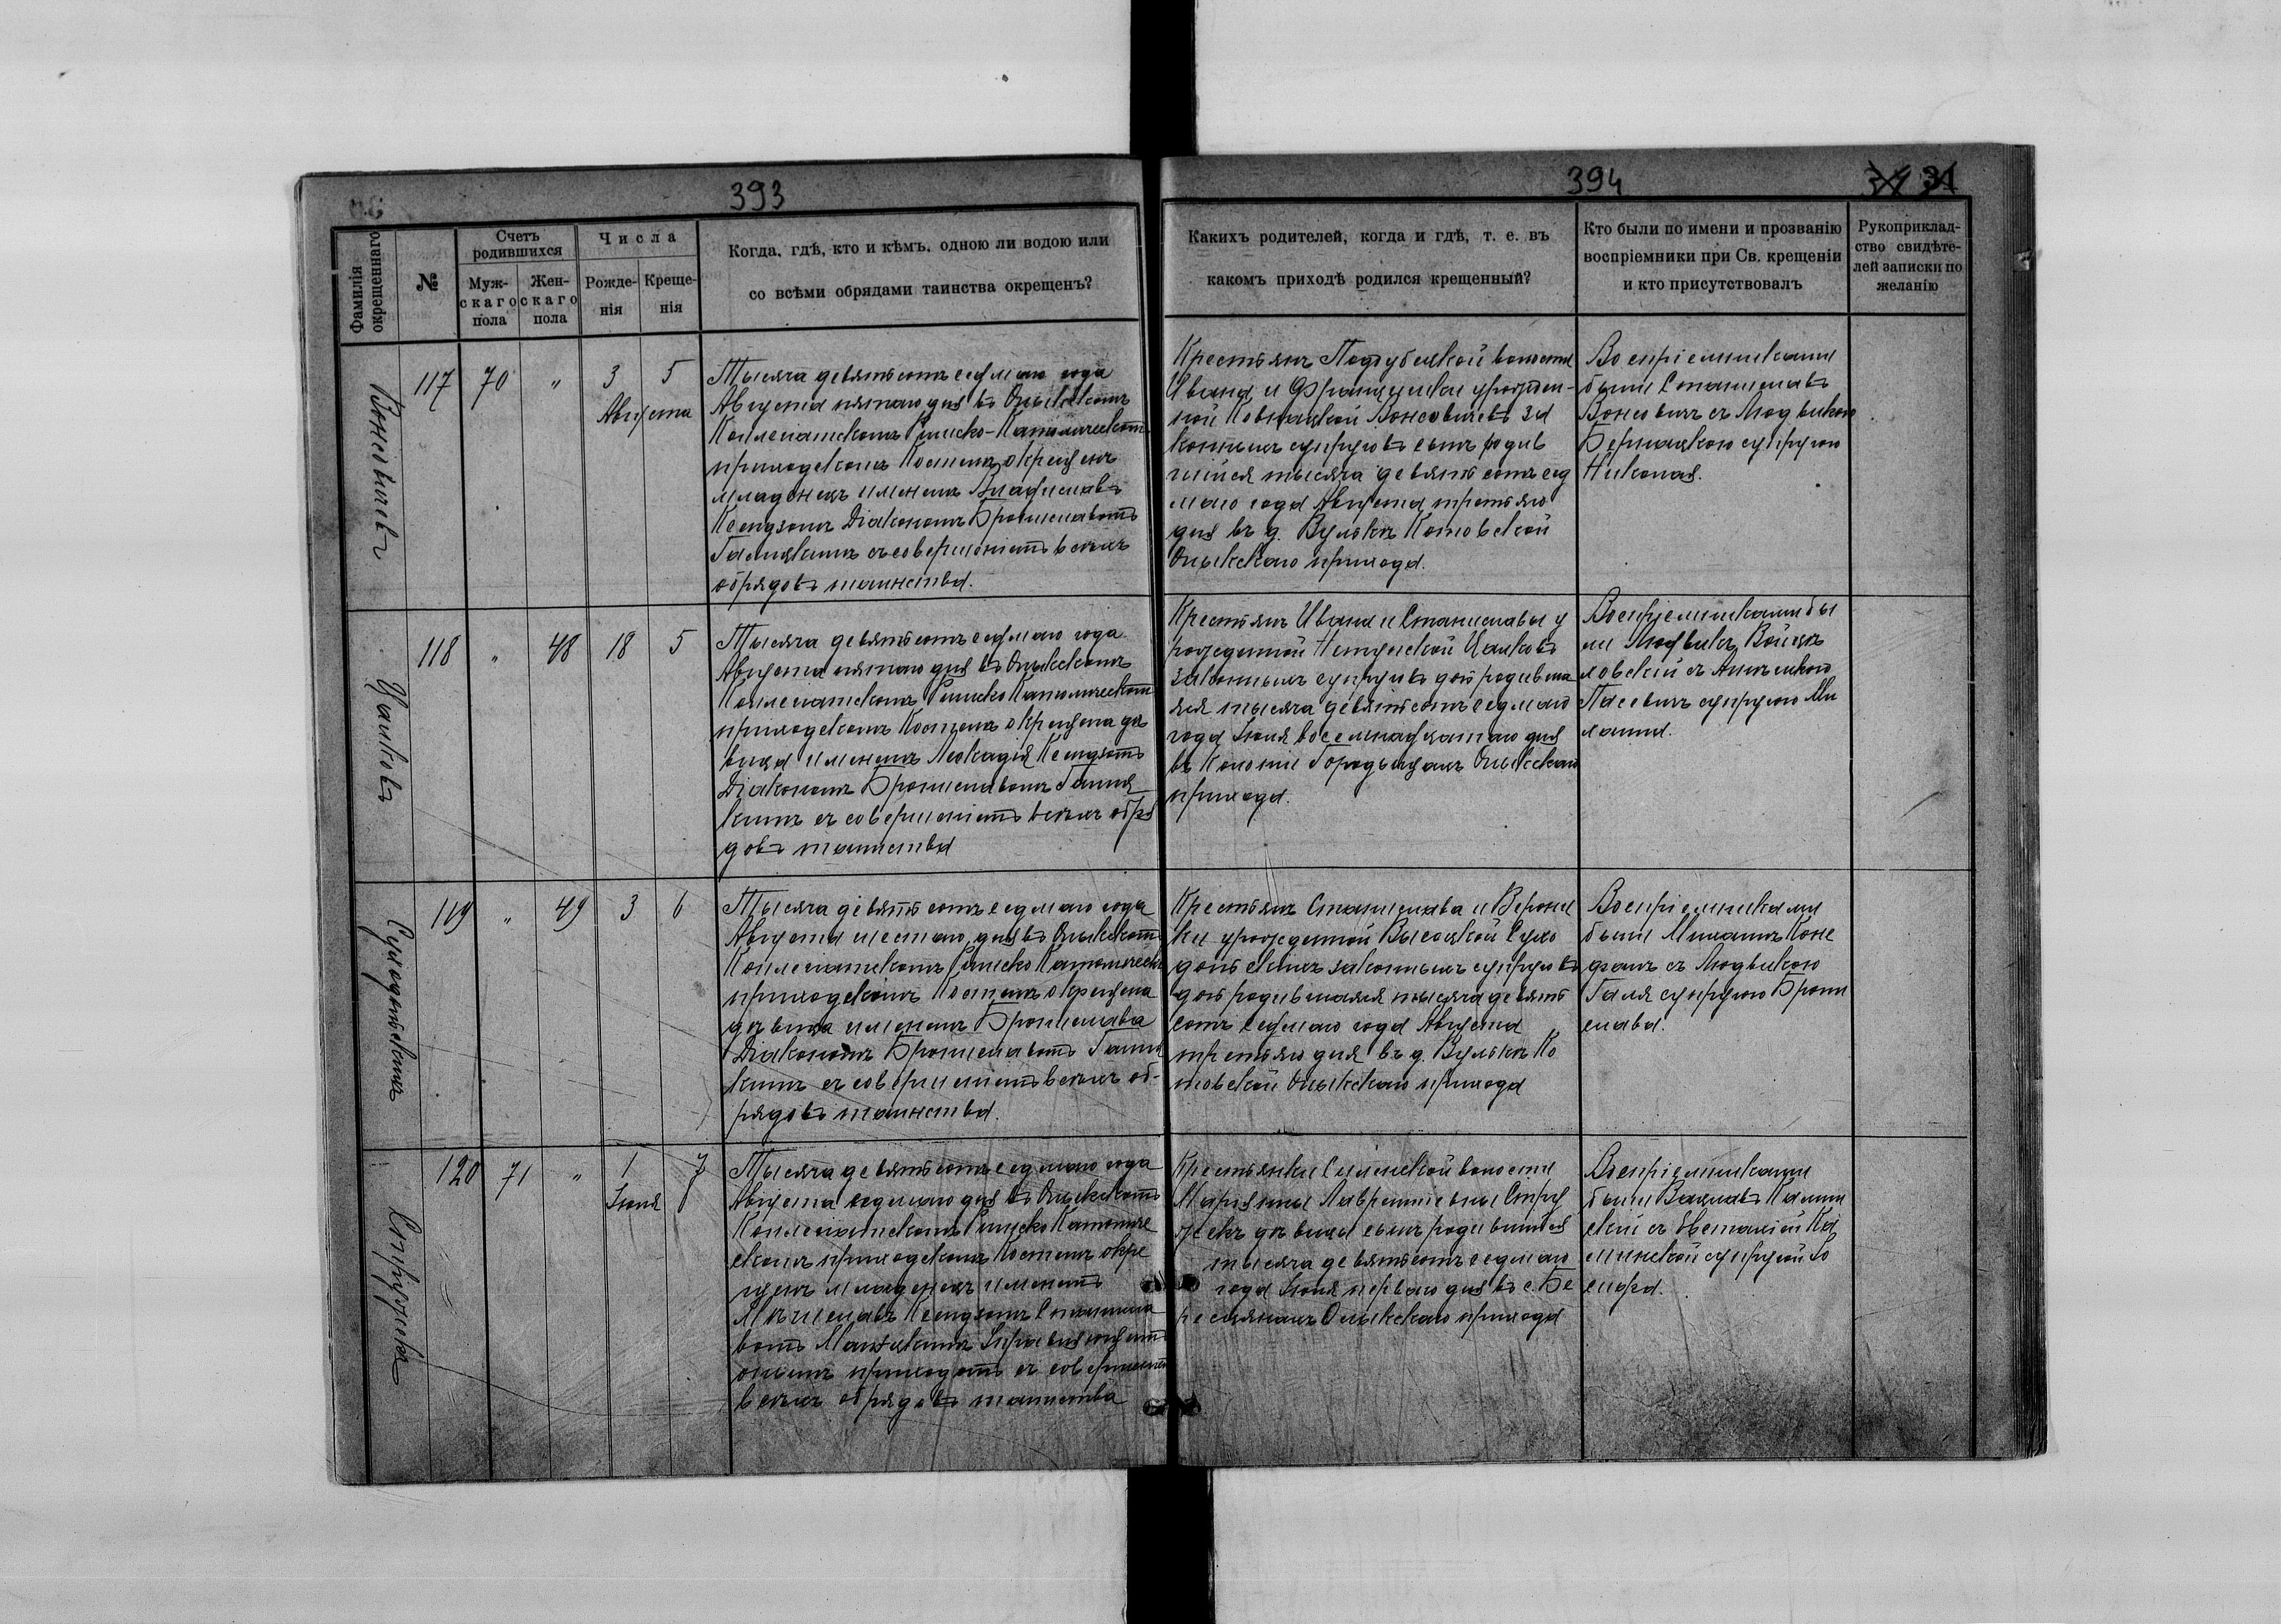 393
Фамилія окрещеннаго
№
Счетъ родившихся
Муж-
скаго
пола
Жен-
скаго
пола
Числа
Рожде-
нія
Креще-
нія
Когда, гдѣ, кто и кѣмъ, одною ли водою или
со всѣми обрядами таинства окрещенъ?
394
Какихъ родителей, когда и гдѣ, т. е. въ
какомъ приходѣ родился крещенный?
Кто были по имени и прозванію
воспріемники при Св. крещеніи
и кто присутствовалъ
Рукоприклад-
ство свидѣте-
лей записки по
желанію
Вонсовичъ
117 70 " 3 5
Августа
Тысяча девятьсотъ седьмаго года
Августа пятаго дня въ Олыкскомъ
Коллегіатскомъ Римско-Католическомъ
приходскомъ Костелѣ окрещенъ
младенецъ именемъ Владиславъ
Ксендзомъ Діакономъ Брониславомъ
Галицкимъ съ совершеніемъ всѣхъ
обрядовъ таинства.
Крестьянъ Поддубецкой волости
Ивана и Францишки урожден-
ной Вонсовичевъ за
конныхъ супруговъ сынъ родив
шійся тысяча девятьсотъ сед
маго года Августа третьяго
дня въ д. Вулькѣ Котовской
Олыкскаго прихода.
Воспріемниками
были Станиславъ
Вонсовичъ съ Людвикою
супругою
Николая.
118 " 48 18 5
Тысяча девятьсотъ седьмаго года
Августа пятаго дня въ Олыкскомъ
Коллегіатскомъ Римско Католическомъ
приходскомъ Костелѣ окрещена дѣ
вица именемъ Леокадія Ксендзомъ
Діакономъ Брониславомъ Галиц
кимъ съ совершеніемъ всѣхъ обря
довъ таинства
Крестьянъ Ивана и Станиславы у
рожденной
законныхъ супруговъ дочь родивша
яся тысяча девятьсотъ седмаго
года Іюля восемнадцатаго дня
въ Колоніи Городыщахъ Олыкскаго
прихода.
Воспріемниками бы
ли Людвикъ Войцѣ
ховскій съ
супругою Ми
хаила.
119 " 49 3 6
Тысяча девятьсотъ седмаго года
Августа шестаго дня въ Олыкскомъ
Коллегіатскомъ Римско Католическ
приходскомъ Костелѣ окрещена
дѣвица именемъ Бронислава
Діакономъ Брониславомъ Галиц
кимъ съ совершеніемъ всѣхъ об-
рядовъ таинства.
Крестьянъ Станислава и Верони
ки урожденной Высоцкой Сухо
дольскихъ законныхъ супруговъ
дочь родившаяся тысяча девять
сотъ седмаго года Августа
третьяго дня въ д. Вулькѣ Ко
товской Олыкскаго прихода
Воспріемниками
были Михаилъ
съ Людвикою
супругою Брони
слава.
120 71 " 1 7
Іюля
Тысяча девятьсотъ седмаго года
Августа седмаго дня въ Олыкскомъ
Коллегіатскомъ Римско Католиче
скомъ приходскомъ Костелѣ окре
щенъ младенецъ именемъ
Мѣчиславъ Ксендзомъ Станисла
вомъ
онымъ приходомъ съ совершеніемъ
всѣхъ обрядовъ таинства
Крестьянки волости
Маріянны Лаврентьевны Стру
жекъ дѣвицы сынъ родившійся
тысяча девятьсотъ седмаго
года Іюля перваго дня въ с. Бе
рестянахъ Олыкскаго прихода
Воспріемниками
были Вацлавъ Камин
скій съ Ка
минской супругой